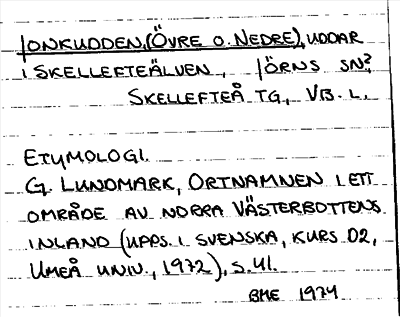 JONKUDDEN, (ÖVRE O. NEDRE), UDDAR
I SKELLEFTEÄLVEN, JÖRNS SN?
SKELLEFTEÅ TG., VB. L.
ETYMOLOGI.
G. LUNDMARK, ORTNAMNEN I ETT
OMRÅDE AV NORRA VÄSTERBOTTENS
INLAND (UPPS. I SVENSKA, KURS 02,
UMEÅ UNIV., 1972), S. 41.
BME 1974